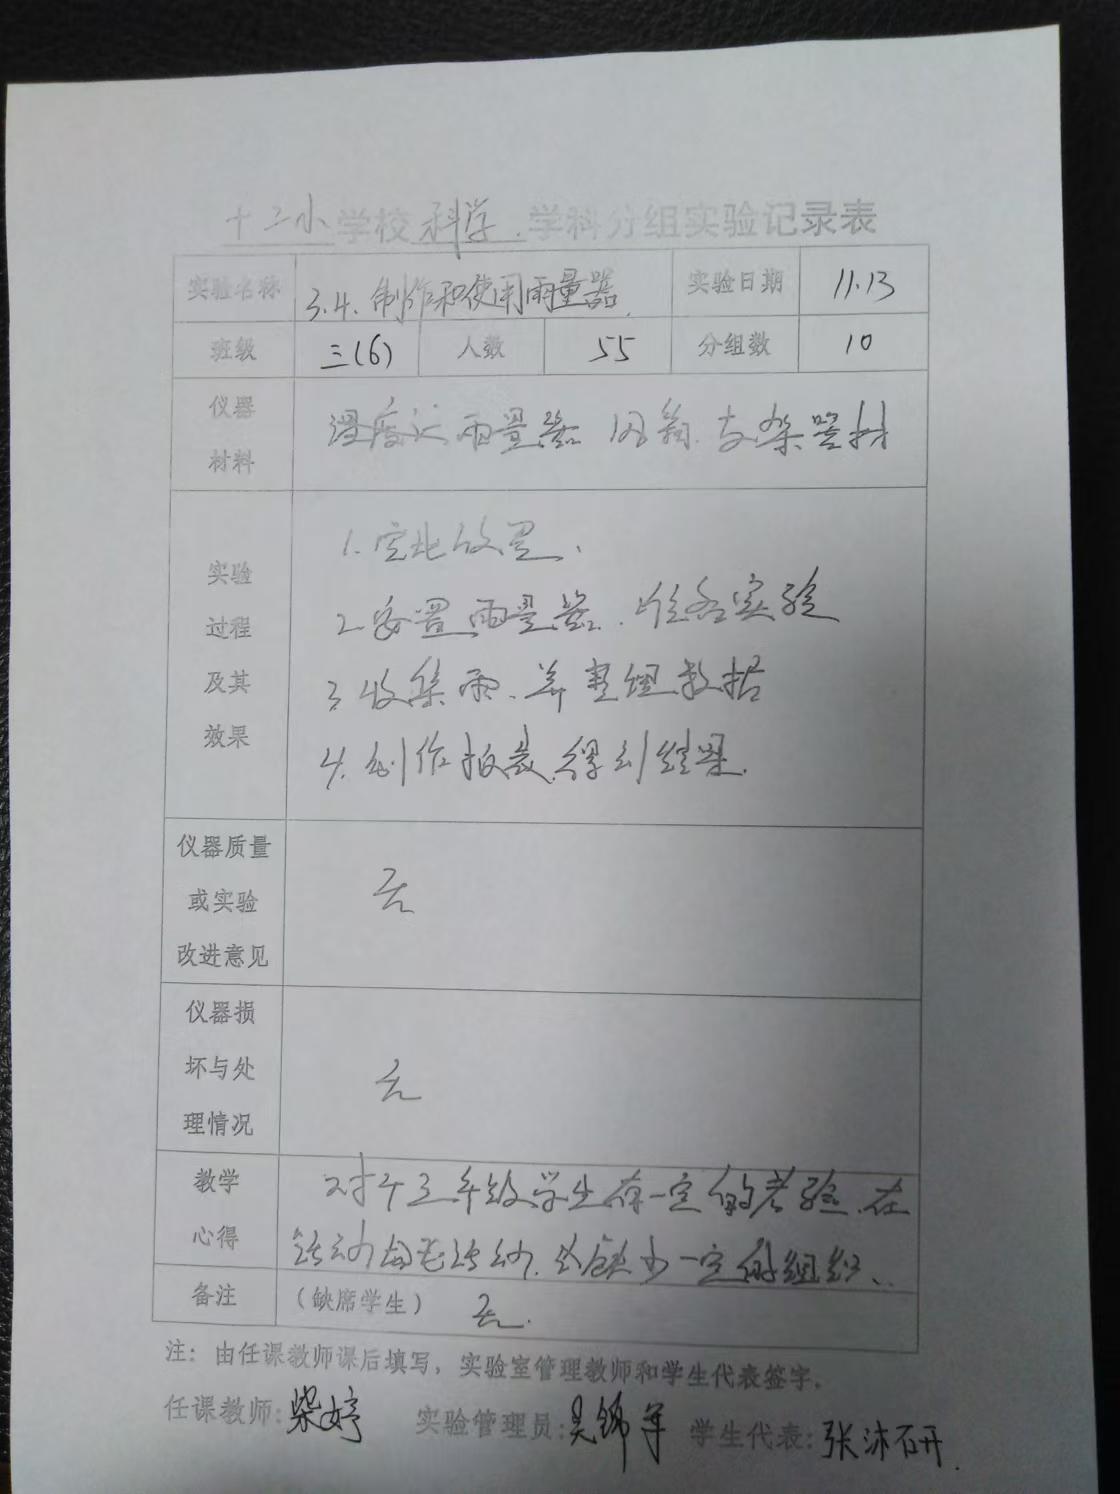 十二小学校科学学科分组实验记录表
实验名称 3.4.制作和使用雨量器. 实验日期 11.13
班级 三(6) 人数 55 分组数 10
仪器材料 温度计 雨量器 风筒. 支架器材
实验过程及其效果
1.空地放置、
2安置雨量器.准备实验
3收集雨.并整理数据
4.制作报表.得到结果.
仪器质量或实验改进意见 无
仪器损坏与处理情况 无
教学心得 对于三年级学生有一定的考验.在
活动,缺少一定的组织、
备注 (缺席学生) 无.
注：由任课教师课后填写，实验室管理教师和学生代表签字。
任课教师:柴婷 实验管理员:吴锦 学生代表:张沐研.